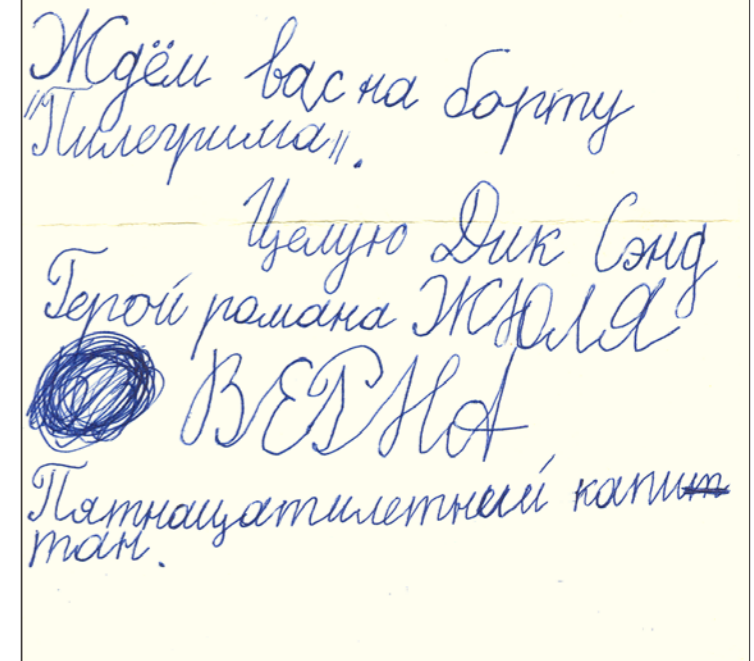 Ждём вас на борту
"Пилегрима".
Целую Дик Сэнд
Герой романа ЖЮЛЯ
ВЕРНА
Пятнацатилетний капит
тан.